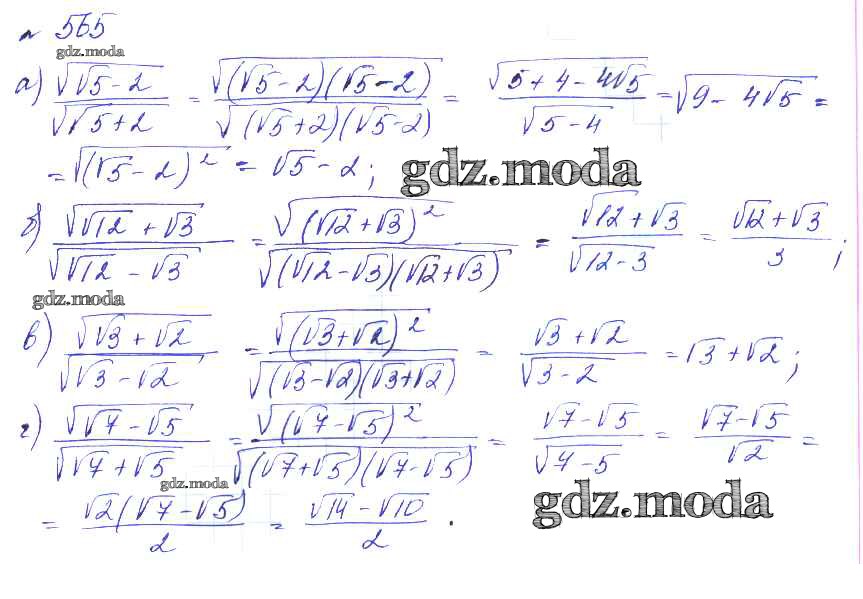 № 565
gdz.moda
а) √(√5 - 2) / √(√5 + 2) = √((√5 - 2)(√5 - 2)) / √((√5 + 2)(√5 - 2)) = √(5 + 4 - 4√5) / √(5 - 4) = √(9 - 4√5) =
= √((√5 - 2)²) = √5 - 2;
gdz.moda
б) √(√12 + √3) / √(√12 - √3) = √((√12 + √3)²) / √((√12 - √3)(√12 + √3)) = √12 + √3 / √(12 - 3) = (√12 + √3) / 3;
gdz.moda
в) √(√3 + √2) / √(√3 - √2) = √((√3 + √2)²) / √((√3 - √2)(√3 + √2)) = (√3 + √2) / √(3 - 2) = √3 + √2;
г) √(√7 - √5) / √(√7 + √5) = √((√7 - √5)²) / √((√7 + √5)(√7 - √5)) = (√7 - √5) / √(7 - 5) = (√7 - √5) / √2 =
gdz.moda
gdz.moda
= √2(√7 - √5) / 2 = (√14 - √10) / 2.